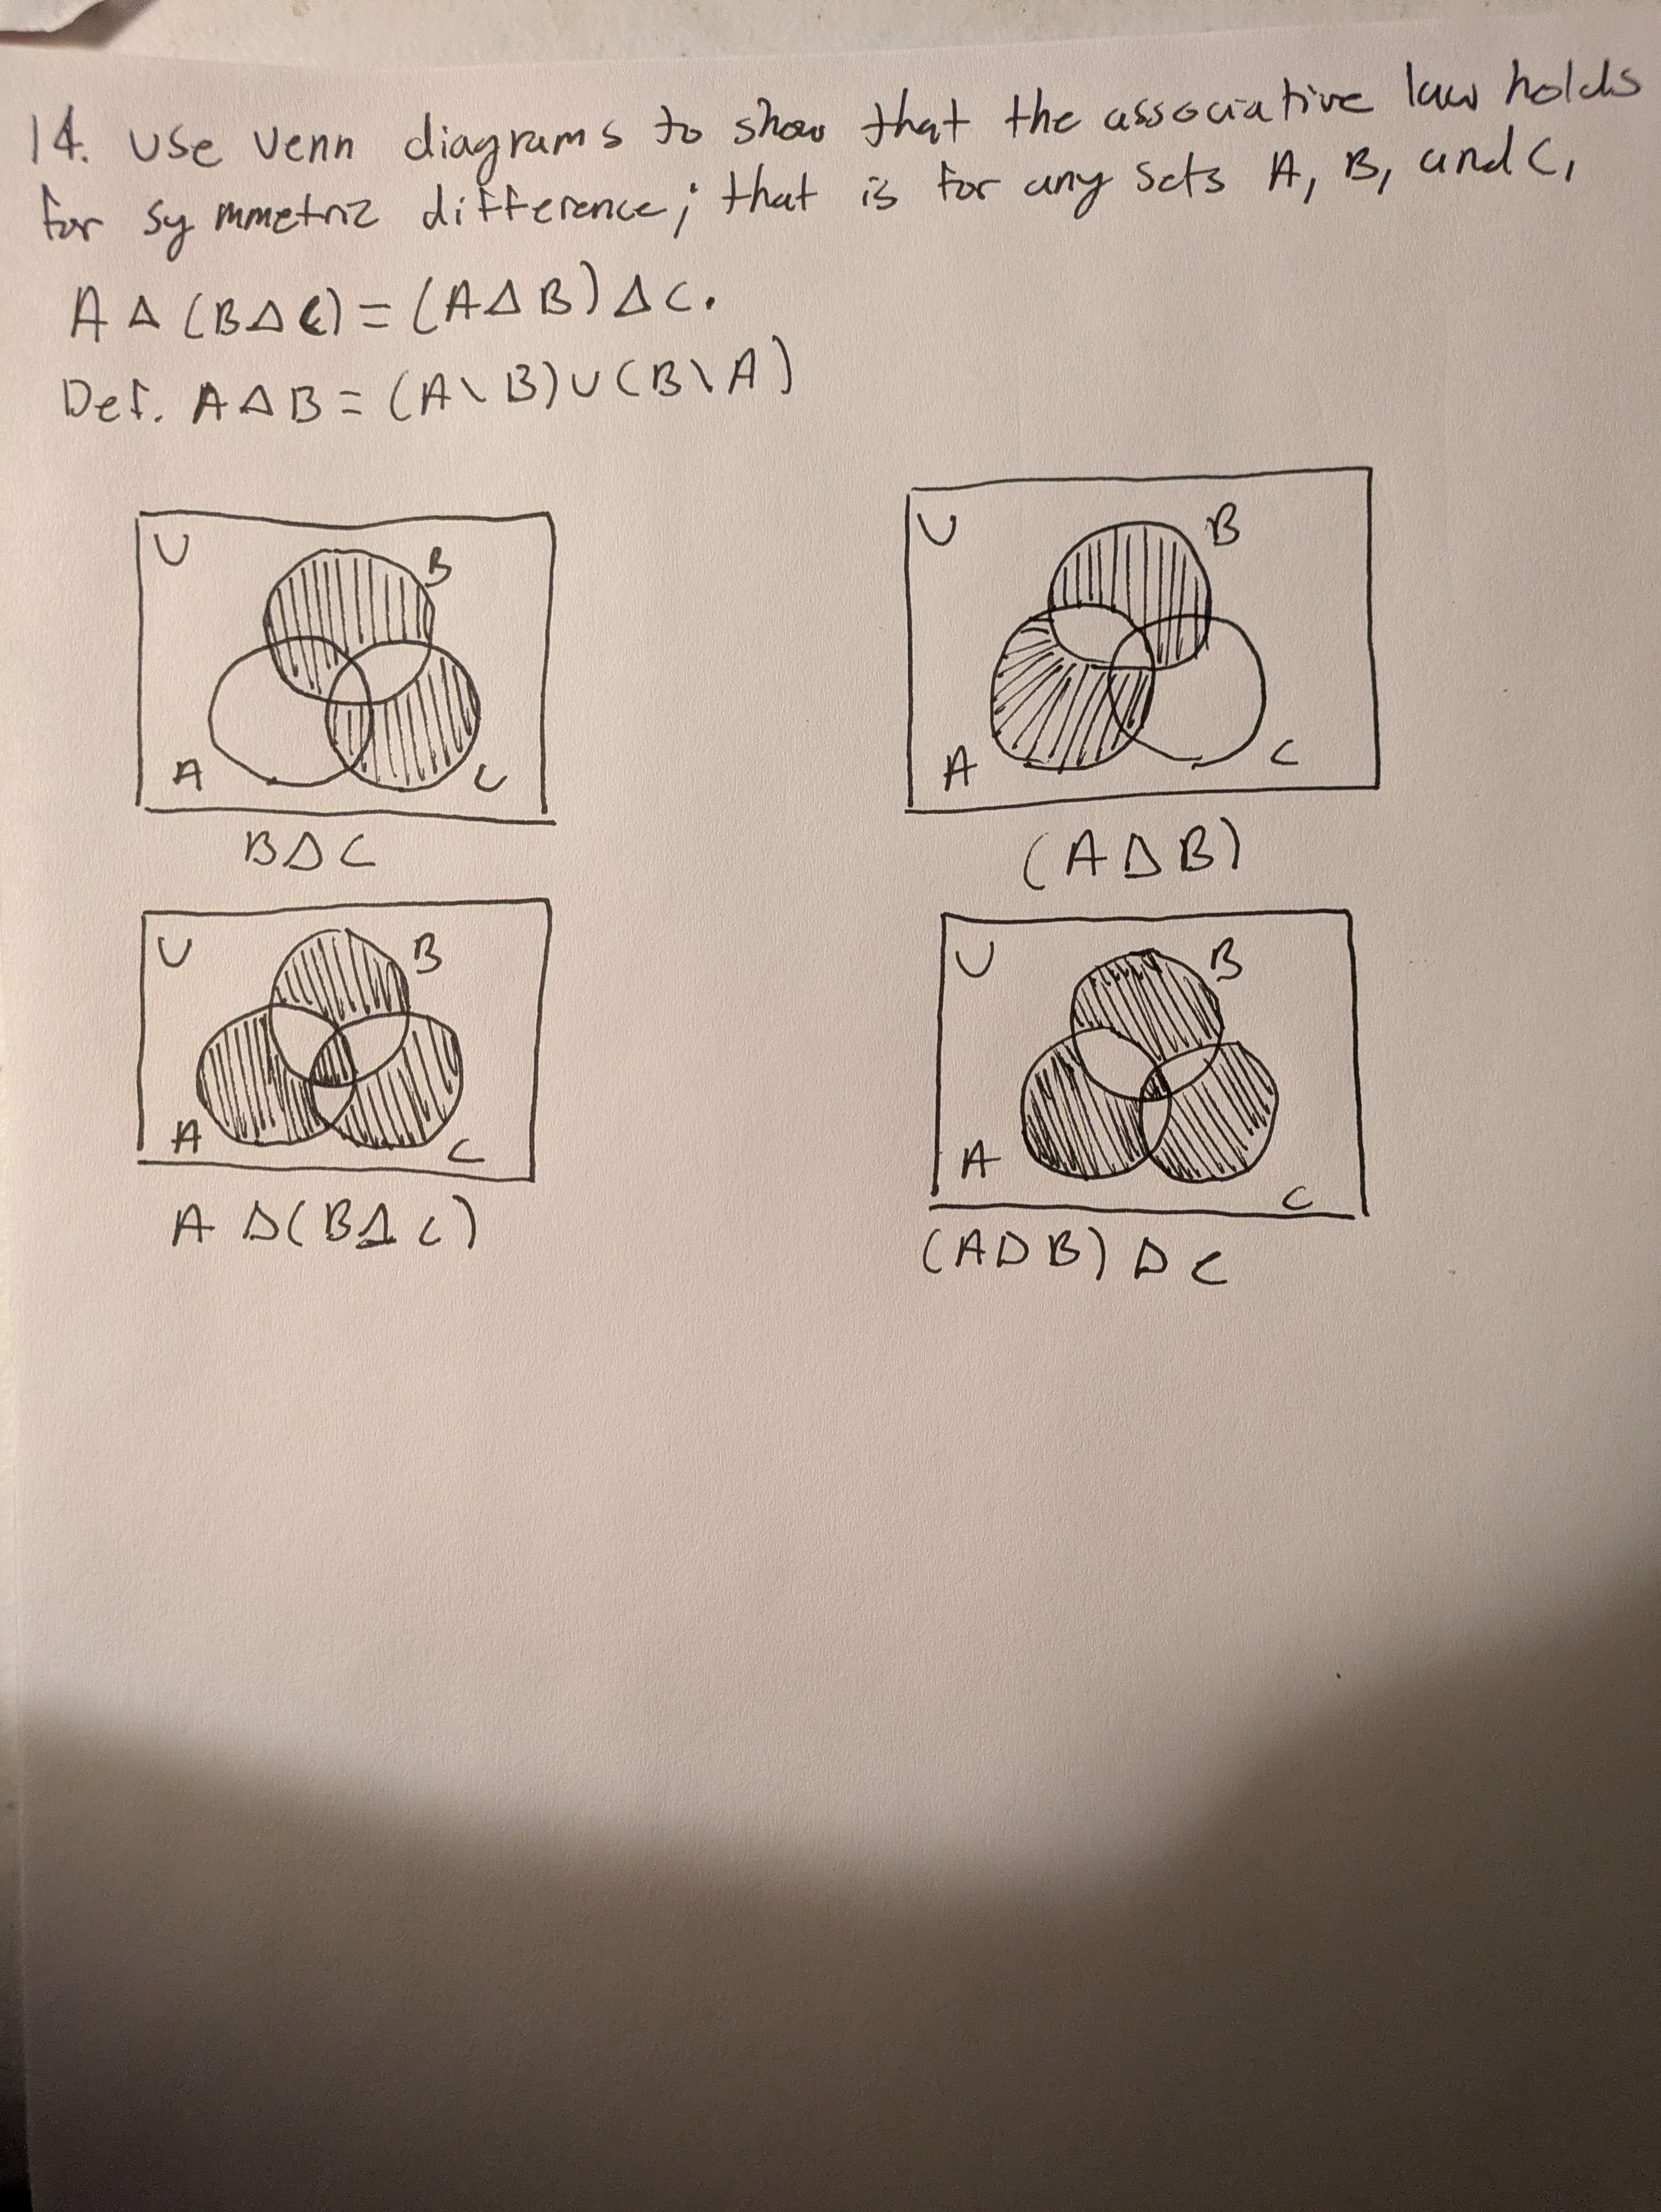 14. Use Venn diagrams to show that the associative law holds
for symmetric difference; that is for any sets A, B, and C,
A Δ (B Δ C) = (A Δ B) Δ C.
Def. A Δ B = (A \ B) ∪ (B \ A)
U B A C
B Δ C
U B A C
(A Δ B)
U B A C
A Δ (B Δ C)
U B A C
(A Δ B) Δ C